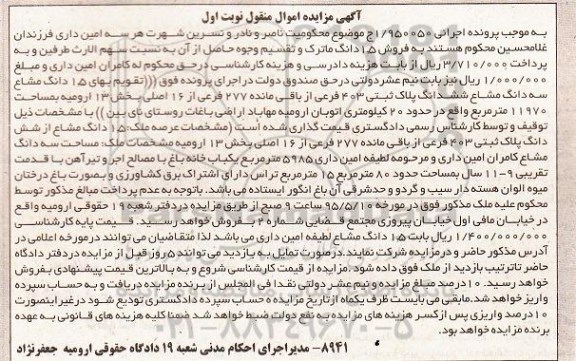 آگهی مزایده اموال منقول نوبت اول
به موجب پرونده اجرائی ۱/۹۵۰۰۵۰ج موضوع محکومیت ناصر و نادر و نسرین شهرت هر سه امین داری فرزندان
غلامحسین محکوم هستند به فروش ۱٫۵ دانگ ماترک و تقسیم وجوه حاصل از آن به نسبت سهم الارث طرفین و به
پرداخت ۳/۷۱۰/۰۰۰ ریال از بابت هزینه دادرسی و هزینه کارشناسی درحق محکوم له کامران امین داری و مبلغ
۱/۰۰۰/۰۰۰ ریال نیز بابت نیم عشر دولتی درحق صندوق دولت در اجرای پرونده فوق ((تقویم بهای ۱٫۵ دانگ مشاع
سه دانگ مشاع ششدانگ پلاک ثبتی ۴۰۳ فرعی از باقی مانده ۲۷۷ فرعی از ۱۶ اصلی بخش ۱۳ ارومیه بمساحت
۱۱۹۷۰ مترمربع واقع در حدود ۲۰ کیلومتری اتوبان ارومیه مهاباد اراضی باغات روستای نای بین)) با مشخصات ذیل
توقیف و توسط کارشناس رسمی دادگستری قیمت گذاری شده است (مشخصات عرصه ملک: ۱٫۵ دانگ مشاع از شش
دانگ پلاک ثبتی ۴۰۳ فرعی از باقی مانده ۲۷۷ فرعی از ۱۶ اصلی بخش ۱۳ ارومیه مشخصات ملک: مساحت سه دانگ
مشاع کامران امین داری و مرحومه لطیفه امین داری ۵۹۸۵ مترمربع یکباب خانه باغ با مصالح اجر و تیرآهن با قدمت
تقریبی ۹-۱۱ سال بمساحت حدود ۸۰ مترمربع ۱۵ مترمربع تراس دارای اشتراک برق کشاورزی و بصورت باغ درختان
میوه الوان هسته دار سیب و گردو و حدشرقی آن باغ انگور ایستاده می باشد. باتوجه به عدم پرداخت مبالغ مذکور توسط
محکوم علیه ملک مذکور فوق در مورخه ۹۵/۵/۳۰ ساعت ۹ صبح از طریق مزایده دردفتر شعبه ۱۹ حقوقی ارومیه واقع
در خیابان مافی اول خیابان پیروزی مجتمع قضایی شماره ۲ بفروش خواهد رسید. قیمت پایه کارشناسی
۱/۴۰۰/۰۰۰/۰۰۰ ریال بابت ۱٫۵ دانگ مشاع لطیفه امین داری می باشد لذا متقاضیان می توانند درمورخه اعلامی در
آدرس مذکور حاضر و درمزایده شرکت نمایند. درصورت تمایل به بازدید می توانند ۵ روز قبل از مزایده دردفتر دادگاه
حاضر تا ترتیب بازدید از ملک فوق داده شود. مزایده از قیمت کارشناسی شروع و به بالاترین قیمت پیشنهادی بفروش
خواهد رسید. ۱۰ درصد مبلغ مزایده و نیم عشر دولتی نقدا فی المجلس از برنده مزایده دریافت و به حساب سپرده
واریز خواهد شد. مابقی می بایست ظرف یکماه از تاریخ مزایده به حساب سپرده دادگستری تودیع شود درغیر اینصورت
۱۰ درصد واریزی پس از کسر هزینه های مزایده به نفع دولت ضبط خواهد شد ضمنا کلیه هزینه های قانونی به عهده
برنده مزایده خواهد بود.
۸۹۴۱- مدیر اجرای احکام مدنی شعبه ۱۹ دادگاه حقوقی ارومیه جعفرنژاد
۰۲۱-۸۸۳۴۹۶۷۰-۵